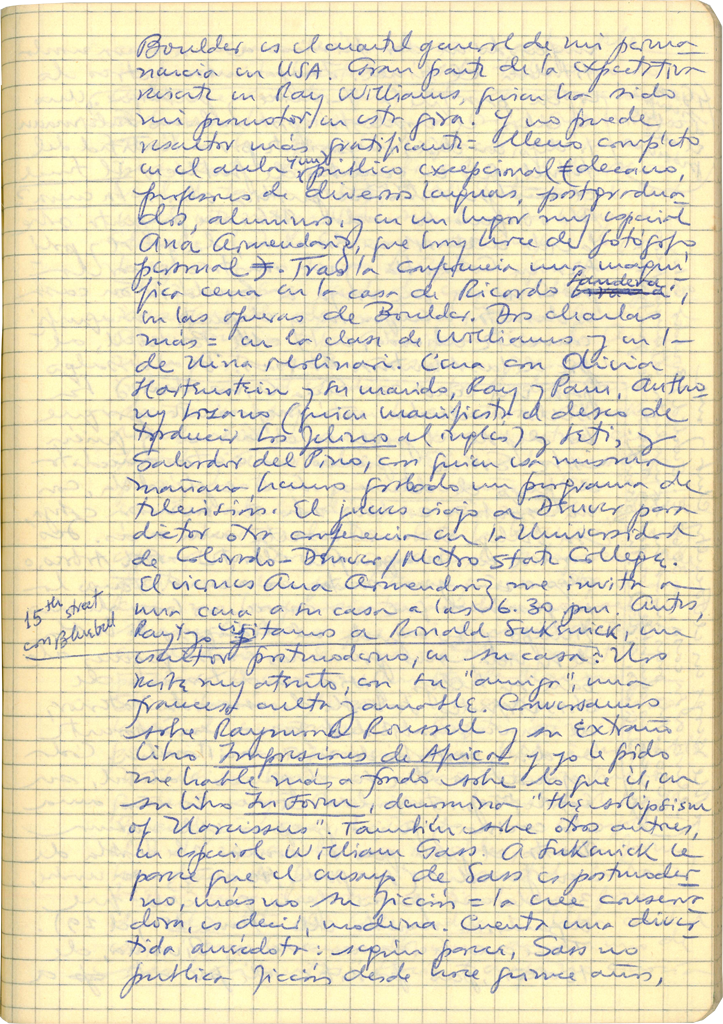 Boulder es el cuartel general de mi perma-
nencia en USA. Gran parte de la expectativa
reside en Ray Williams, quien ha sido
mi promotor en esta gira. Y no puede
resultar más gratificante = lleno completo
en el aula y un público excepcional (decano,
profesores de diversas lenguas, postgradua-
dos, alumnos, y en un lugar muy especial
Ana Armendariz, que hoy hace de fotógrafo
personal). Tras la conferencia una magní-
fica cena en la casa de Ricardo Landeira,
en las afueras de Boulder. Dos charlas
más = en la clase de Williams y en la
de Nina Molinari. Cena con Olivia
Hartenstein y su marido, Ray y Pam, Antho-
ny Lozano (quien manifiesta el deseo de
traducir Los felinos al inglés) y Leti, y
Salvador del Pino, con quien esa misma
mañana hemos grabado un programa de
televisión. El jueves viajo a Denver para
dictar otra conferencia en la Universidad
de Colorado-Denver/Metro State College.
El viernes Ana Armendariz me invita a
una cena a su casa a las 6.30 pm. Antes,
15th street
con Bluebell
Ray y yo visitamos a Ronald Sukenick, un
escritor postmoderno, en su casa. Nos
recibe muy atento, con su "amiga", una
francesa culta y amable. Conversamos
sobre Raymond Roussell y su extraño
libro Impresiones de Africa y yo le pido
me hable más a fondo sobre lo que él, en
su libro In Form, denomina "the solipsism
of Narcissus". También sobre otros autores,
en especial William Gass. A Sukenick le
parece que el ensayo de Gass es postmoder-
no, más no su ficción = la cree conserva-
dora, es decir, moderna. Cuenta una diver-
tida anécdota: según parece, Gass no
publica ficción desde hace quince años,